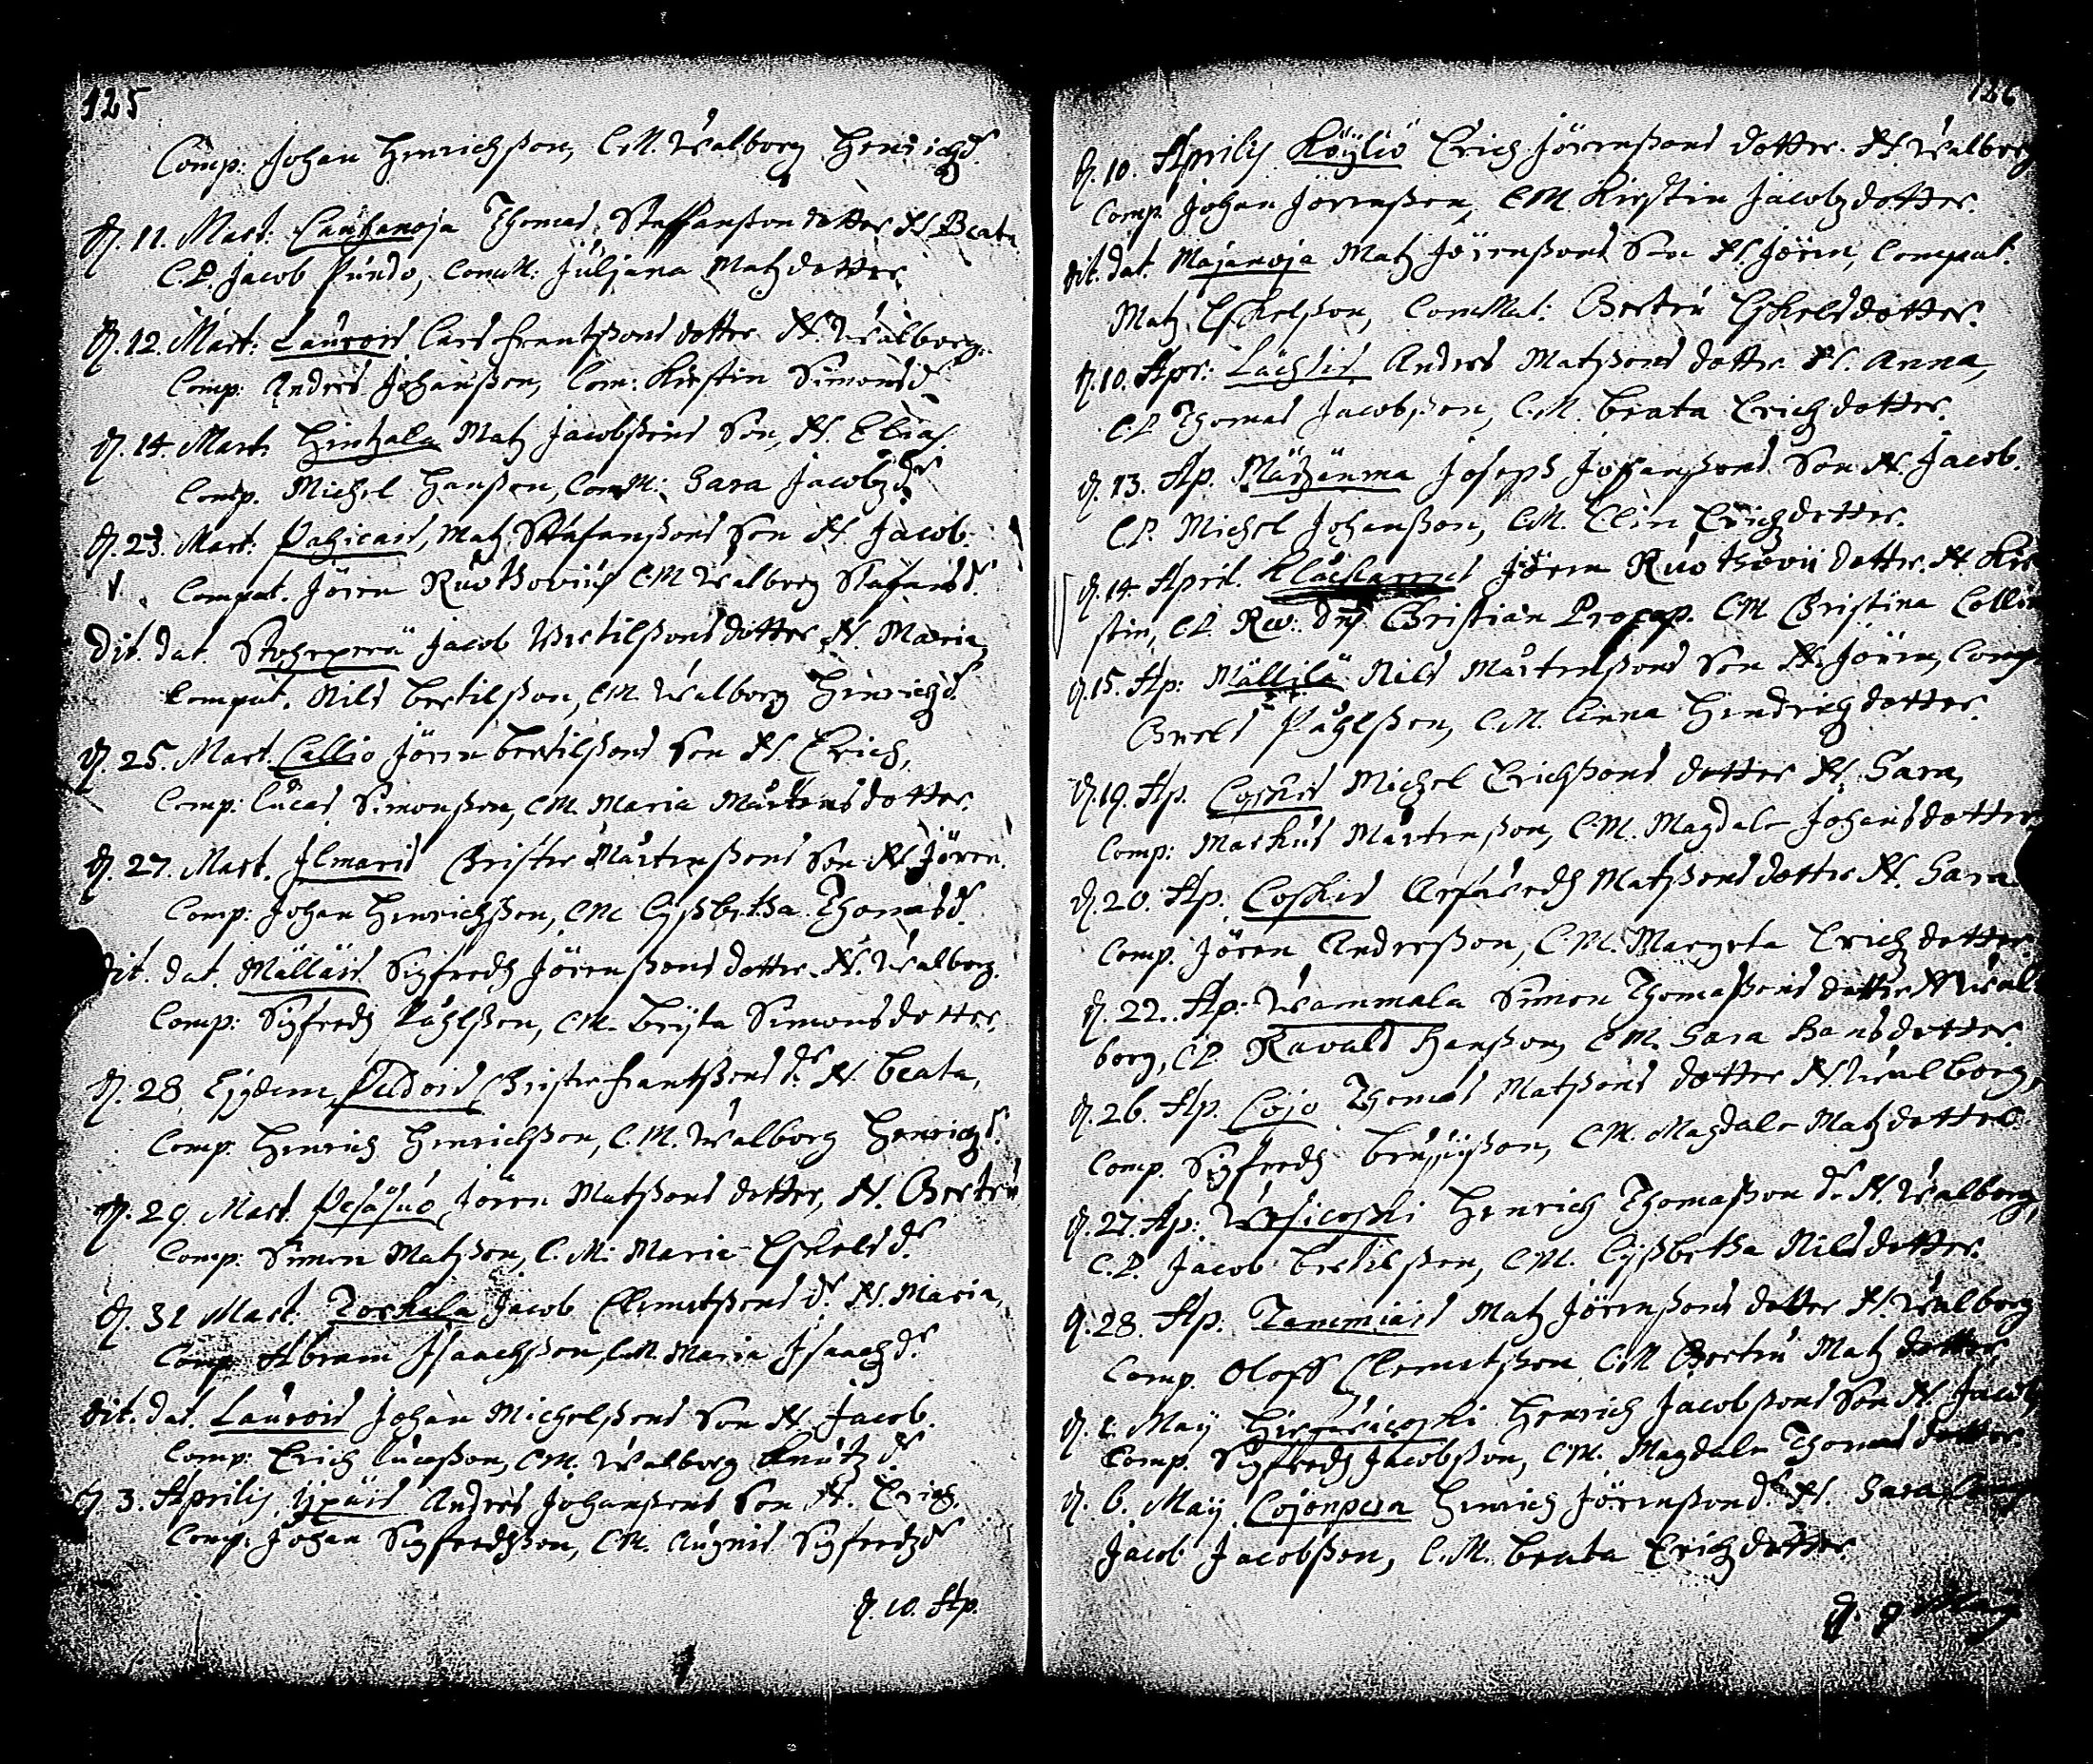 125
Comp: Johan Hinrichßon, C.M. Walborg Henrichzdr.
d. 11. Mart: Lauhanoja Thomas Staffanßon dotter N. Beata
C.P. Jacob Pundo, ComM: Juljana Matzdotter.
d. 12. Mart: Laurois Lars frantßons dotter N. Walborg.
Comp: Andres Johanßon, Com: Kirstin Simonsdr
d. 14. Mart: Hintzala Matz Jacobßons Son, N. Elias.
Comp. Michel Hanßon, ComM: Sara Jacobzdr
d. 23. Mart: Pahicais, Matz Stafanßons Son N. Jacob.
Compat. Jören Ruothovius C.M Walborg Stafansdr.
Dit. dat. Jacob Bertilßons dotter N. Maria,
Compat. Nils Bertilßon, C.M. Walborg Hinrichzdr.
d. 25. Mart. Callio Jören Bertilßons Son N. Erich,
Comp: Lucas Simonßon, C.M. Maria Mårtensdotter.
d. 27. Mart. Jlmaris Christer Mårtenßons Son N. Jören.
Comp: Johan Hinrichßon, C.M Lyßbetha Thomasdr.
Dit. dat. Mälläis Sigfredz Jörenßons dotter N. Walborg.
Comp: Sigfredz Påhlßon, C.M. Bryta Simonsdotter.
d. 28. Ejusdem Christer frantßons dr. N. Beata,
Comp. Hinrich Hinrichßon, C.M. Walborg Henrichzdr.
d. 29. Mart. Pesäsuo Jören Matßons dotter, N. Gertru
Comp: Simon Matzßon, C.M: Maria Eskelsdr.
d. 31 Mart. Torkala Jacob Clemetßons dr. N. Maria,
Comp: Abram Jsaachßon, C.M. Maria Jsaachzdr.
Dit. dat. Laurois Johan Michelßons Son N. Jacob.
Comp: Erich Lucaßon, C.M. Walborg Knutzdr.
d 3. Aprilis Ypäis Andres Johanßons Son N. Erich.
Comp: Johan Sigfredzßon, C.M. Augnis Sigfredzdr
d. 10. Ap.
126
d. 10. Aprilis Köyliö Erich Jörenßons dotter N. Walborg
Comp. Johan Jörenßon, C.M Kirstin Jacobzdotter.
Dit. dat. Majanoja Matz Jörenßons Son N. Jören, Compat:
Matz Eskelßon, ComMat: Gertru Eskelsdotter.
d. 10. Apr: Lächtis Andres Matßons dotter N. Anna,
C.P. Thomas Jacobßon, C.M. Beata Erichzdotter.
d. 13. Ap. Joseph Johanßons Son N. Jacob.
C.P. Michel Johanßon, C.M. Elin Erichzdotter.
d. 14 April. Jören Ruothovii dotter. N. Kir
stin, C.P. Rev. Dns Christian Procop. C.M Christina Colli
d. 15. Ap: Mällilä Nils Mårtenßons Son N. Jören, Comp
Grels Påhlßon, C.M. Anna Hindrichzdotter.
d. 19. Ap. Coskis Michel Erichßons dotter N. Sara,
Comp: Markus Mårtenßon, C.M. Magdale Johansdotter
d. 20. Ap. Coskis Arfuedh Matßons dotter N. Sara.
Comp. Jören Andreßon, C.M. Margeta Erichzdotter
d. 22. Ap: Wammala Simon Thomaßons dotter N Wal-
borg, C.P. Ravald Hanßon, C.M. Sara Hansdotter.
d. 26. Ap. Cojo Thomas Matßons dotter N Walborg,
Comp. Sigfredz C.M. Magdale Matzdotter.
d. 27. Ap: Wesicoski Henrich Thomaßon dr. N. Walborg,
C.P. Jacob Bertilßon, C.M. Lyßbetha Nilsdotter.
d. 28. Ap. Tammiais Matz Jörenßons dotter N. Walborg
Comp. Oloff Clemetßon C.M Gertru Matzdotter,
d. 1. May Henrich Jacobßons Son N. Jacob
Comp. Sigfredz Jacobßon, C.M. Magdale Thomasdotter
d. 6. May Cojonpera Hinrich Jörenßons dr N. Sara Comp
Jacob Jacobßon, C.M. Beata Erichzdotter.
d. 9 May